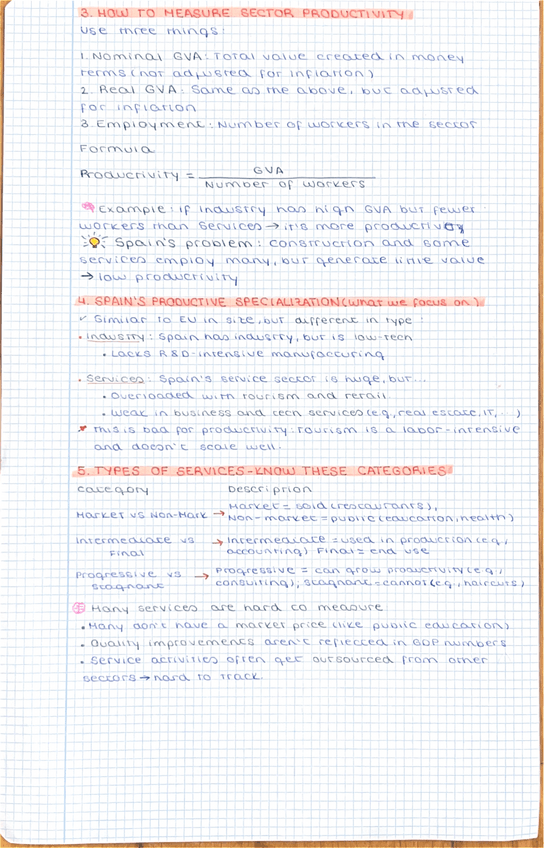 3. HOW TO MEASURE SECTOR PRODUCTIVITY
Use three things:
1. Nominal GVA: Total value created in money
terms (not adjusted for inflation)
2. Real GVA: Same as the above, but adjusted
for inflation
3. Employment: Number of workers in the sector
Formula
Productivity = GVA
Number of workers
Example: if industry has high GVA but fewer
workers than services → it's more productive
Spain's problem: construction and some
services employ many, but generate little value
→ low productivity
4. SPAIN'S PRODUCTIVE SPECIALIZATION (what we focus on)
✓ Similar to EU in size, but different in type:
• Industry: Spain has industry, but is low-tech
• Lacks R&D-intensive manufacturing
• Services: Spain's service sector is huge, but...
• Overloaded with tourism and retail
• Weak in business and tech services (e.g, real estate, IT, ...)
This is bad for productivity: tourism is a labor-intensive
and doesn't scale well.
5. TYPES OF SERVICES-KNOW THESE CATEGORIES
Category Description
Market vs Non-Mark → Market = sold (restaurants),
Non-market = public (education, health)
Intermediate vs → Intermediate = used in production (e.g,
Final accounting) Final = end use
Progressive vs → Progressive = can grow productivity (e.g,
stagnant consulting), stagnant = cannot (e.g, haircuts)
Many services are hard to measure
• Many don't have a market price (like public education)
• Quality improvements aren't reflected in GDP numbers
• Service activities often get outsourced from other
sectors → hard to track.